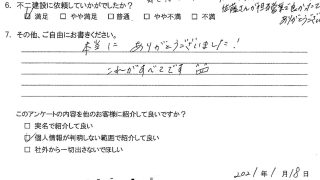 6. 不二建設に依頼していかがでしたか?
☑満足 □やや満足 □普通 □やや不満 □不満
ありがとう
7. その他、ご自由にお書きください。
本当に ありがとうございました!
これがすべてです
このアンケートの内容を他のお客様に紹介して良いですか?
□実名で紹介して良い
☑個人情報が判明しない範囲で紹介して良い
□社外から一切出さないでほしい
2021年1月18日